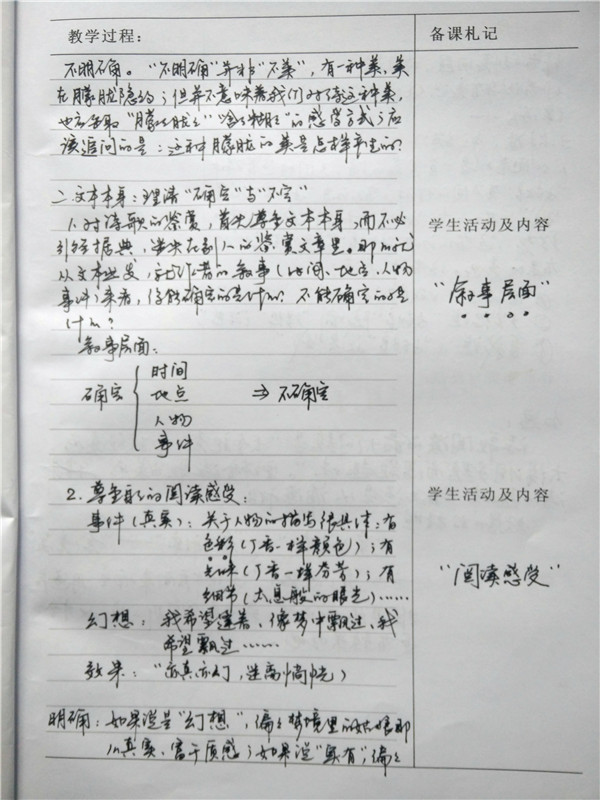 教学过程：
备课札记
不明不确。“不明确”并非“不美”，有一种美，美
在朦胧隐约；但并不意味着我们对待这种美，
也应采取“朦朦胧胧”“含含糊糊”的感学方式；应
该追问的是：这种朦胧的美是怎样产生的？
二、文本本身：理清“确定”与“不定”
1. 对诗歌的鉴赏，首先尊重文本本身，而不必
引经据典，迷失在别人的鉴赏文章里。那我就
从文本出发，从作者的叙事（时间、地点、人物
事件）来看，你能确定的是什么？不能确定的是
什么？
叙事层面：
确定 { 时间
地点 ⇒ 不确定
人物
事件
2. 尊重我的阅读感受：
事件（真实）：关于人物的描写很具体：有
色彩（丁香一样颜色）；有
气味（丁香一样芬芳）；有
细节（太息般的眼光）……
幻想：我希望逢着、像梦中飘过、我
希望飘过……
效果：“亦真亦幻，
明确：如果说是“幻想”，偏偏梦境里的姑娘那
么真实、富于质感；如果说“实有”，偏偏
学生活动及内容
“叙事层面”
学生活动及内容
“阅读感受”